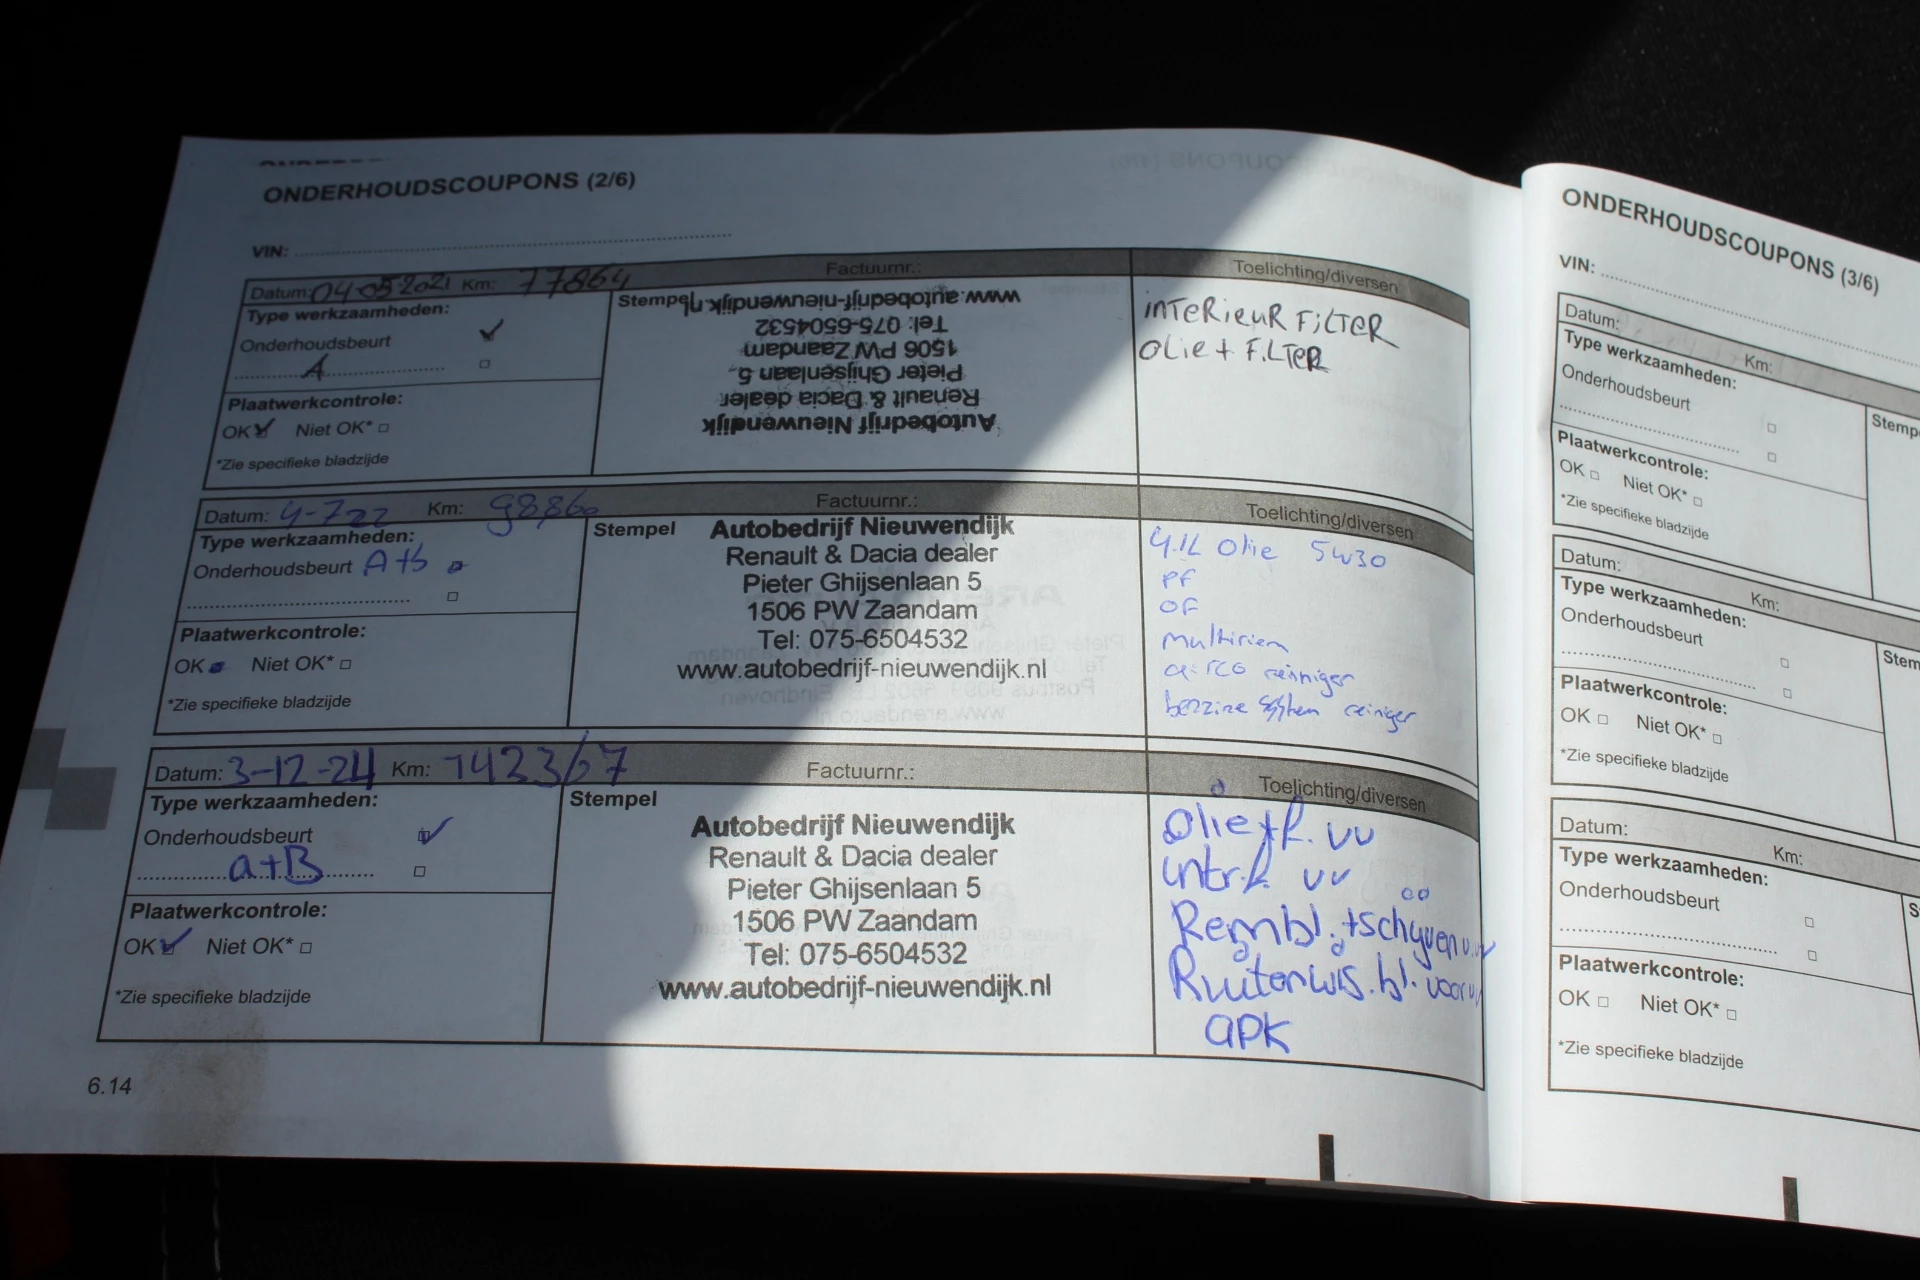 ONDERHOUDSCOUPONS (2/6)
VIN:
Datum: 04-05-2021 Km: 77864 Factuurnr.: Toelichting/diversen
Type werkzaamheden:
Onderhoudsbeurt
A
Plaatwerkcontrole:
OK Niet OK*
*Zie specifieke bladzijde
Stempel
Autobedrijf Nieuwendijk
Renault & Dacia dealer
Pieter Ghijsenlaan 5
1506 PW Zaandam
Tel: 075-6504532
www.autobedrijf-nieuwendijk.nl
INTERIEUR FILTER
OLIE + FILTER
Datum: 4-722 Km: 98860 Factuurnr.: Toelichting/diversen
Type werkzaamheden:
Onderhoudsbeurt A+B
Plaatwerkcontrole:
OK Niet OK*
*Zie specifieke bladzijde
Stempel
Autobedrijf Nieuwendijk
Renault & Dacia dealer
Pieter Ghijsenlaan 5
1506 PW Zaandam
Tel: 075-6504532
www.autobedrijf-nieuwendijk.nl
4.1L Olie 5w30
PF
OF
multiriem
airco reiniger
benzine system reiniger
Datum: 3-12-24 Km: 142367 Factuurnr.: Toelichting/diversen
Type werkzaamheden:
Onderhoudsbeurt
a+B
Plaatwerkcontrole:
OK Niet OK*
*Zie specifieke bladzijde
Stempel
Autobedrijf Nieuwendijk
Renault & Dacia dealer
Pieter Ghijsenlaan 5
1506 PW Zaandam
Tel: 075-6504532
www.autobedrijf-nieuwendijk.nl
Olie+f. vv
intr.f. vv
Rembl.+schijven
Ruitenwis.bl. voor
APK
6.14
ONDERHOUDSCOUPONS (3/6)
VIN:
Datum: Km:
Type werkzaamheden:
Onderhoudsbeurt
Plaatwerkcontrole:
OK Niet OK*
*Zie specifieke bladzijde
Stemp
Datum: Km:
Type werkzaamheden:
Onderhoudsbeurt
Plaatwerkcontrole:
OK Niet OK*
*Zie specifieke bladzijde
Stem
Datum: Km:
Type werkzaamheden:
Onderhoudsbeurt
Plaatwerkcontrole:
OK Niet OK*
*Zie specifieke bladzijde
S